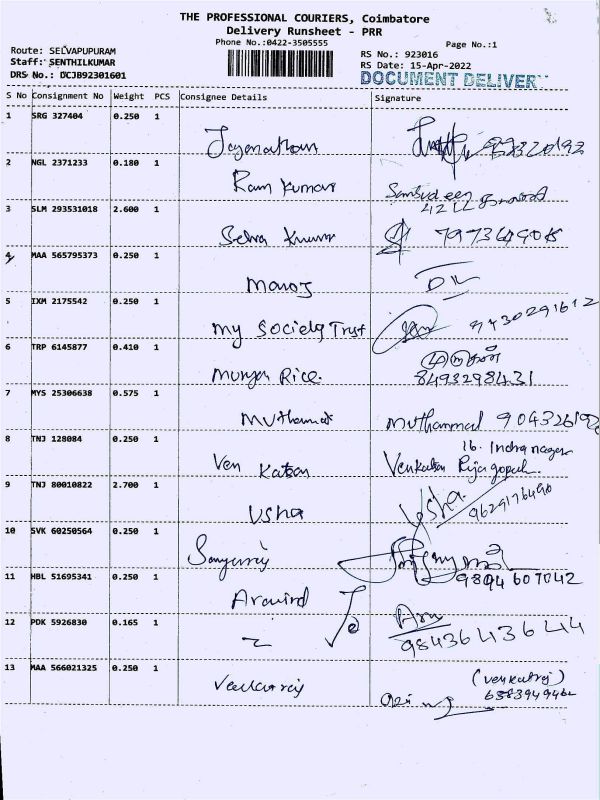 THE PROFESSIONAL COURIERS, Coimbatore
Delivery Runsheet - PRR
Phone No.:0422-3505555
Page No.:1
Route: SELVAPUPURAM
RS No.: 923016
Staff: SENTHILKUMAR
RS Date: 15-Apr-2022
DRS No.: DCJB92301601
DOCUMENT DELIVER
S No Consignment No Weight PCS Consignee Details Signature
1 SRG 327404 0.250 1
2 NGL 2371233 0.180 1 Ram Kumar
3 SLM 293531018 2.600 1 Selva Kumar
4 MAA 565795373 0.250 1 Manoj
5 IXM 2175542 0.250 1 My Society Trust 9430291612
6 TRP 6145877 0.410 1 Murgan Rice. முருகன்
8493298431
7 MYS 25306638 0.575 1 Muthamal Muthammal 904326192
8 TNJ 128084 0.250 1 Ven Katsan 16. Indra nagar
Venkatsan Rajagopal.
9 TNJ 80010822 2.700 1 Usha Usha.
9629176490
10 SVK 60250564 0.250 1
9894607042
11 HBL 51695341 0.250 1 Aravind
12 PDK 5926830 0.165 1 Aru
9843643644
13 MAA 566021325 0.250 1 Venkatraj (Venkatraj)